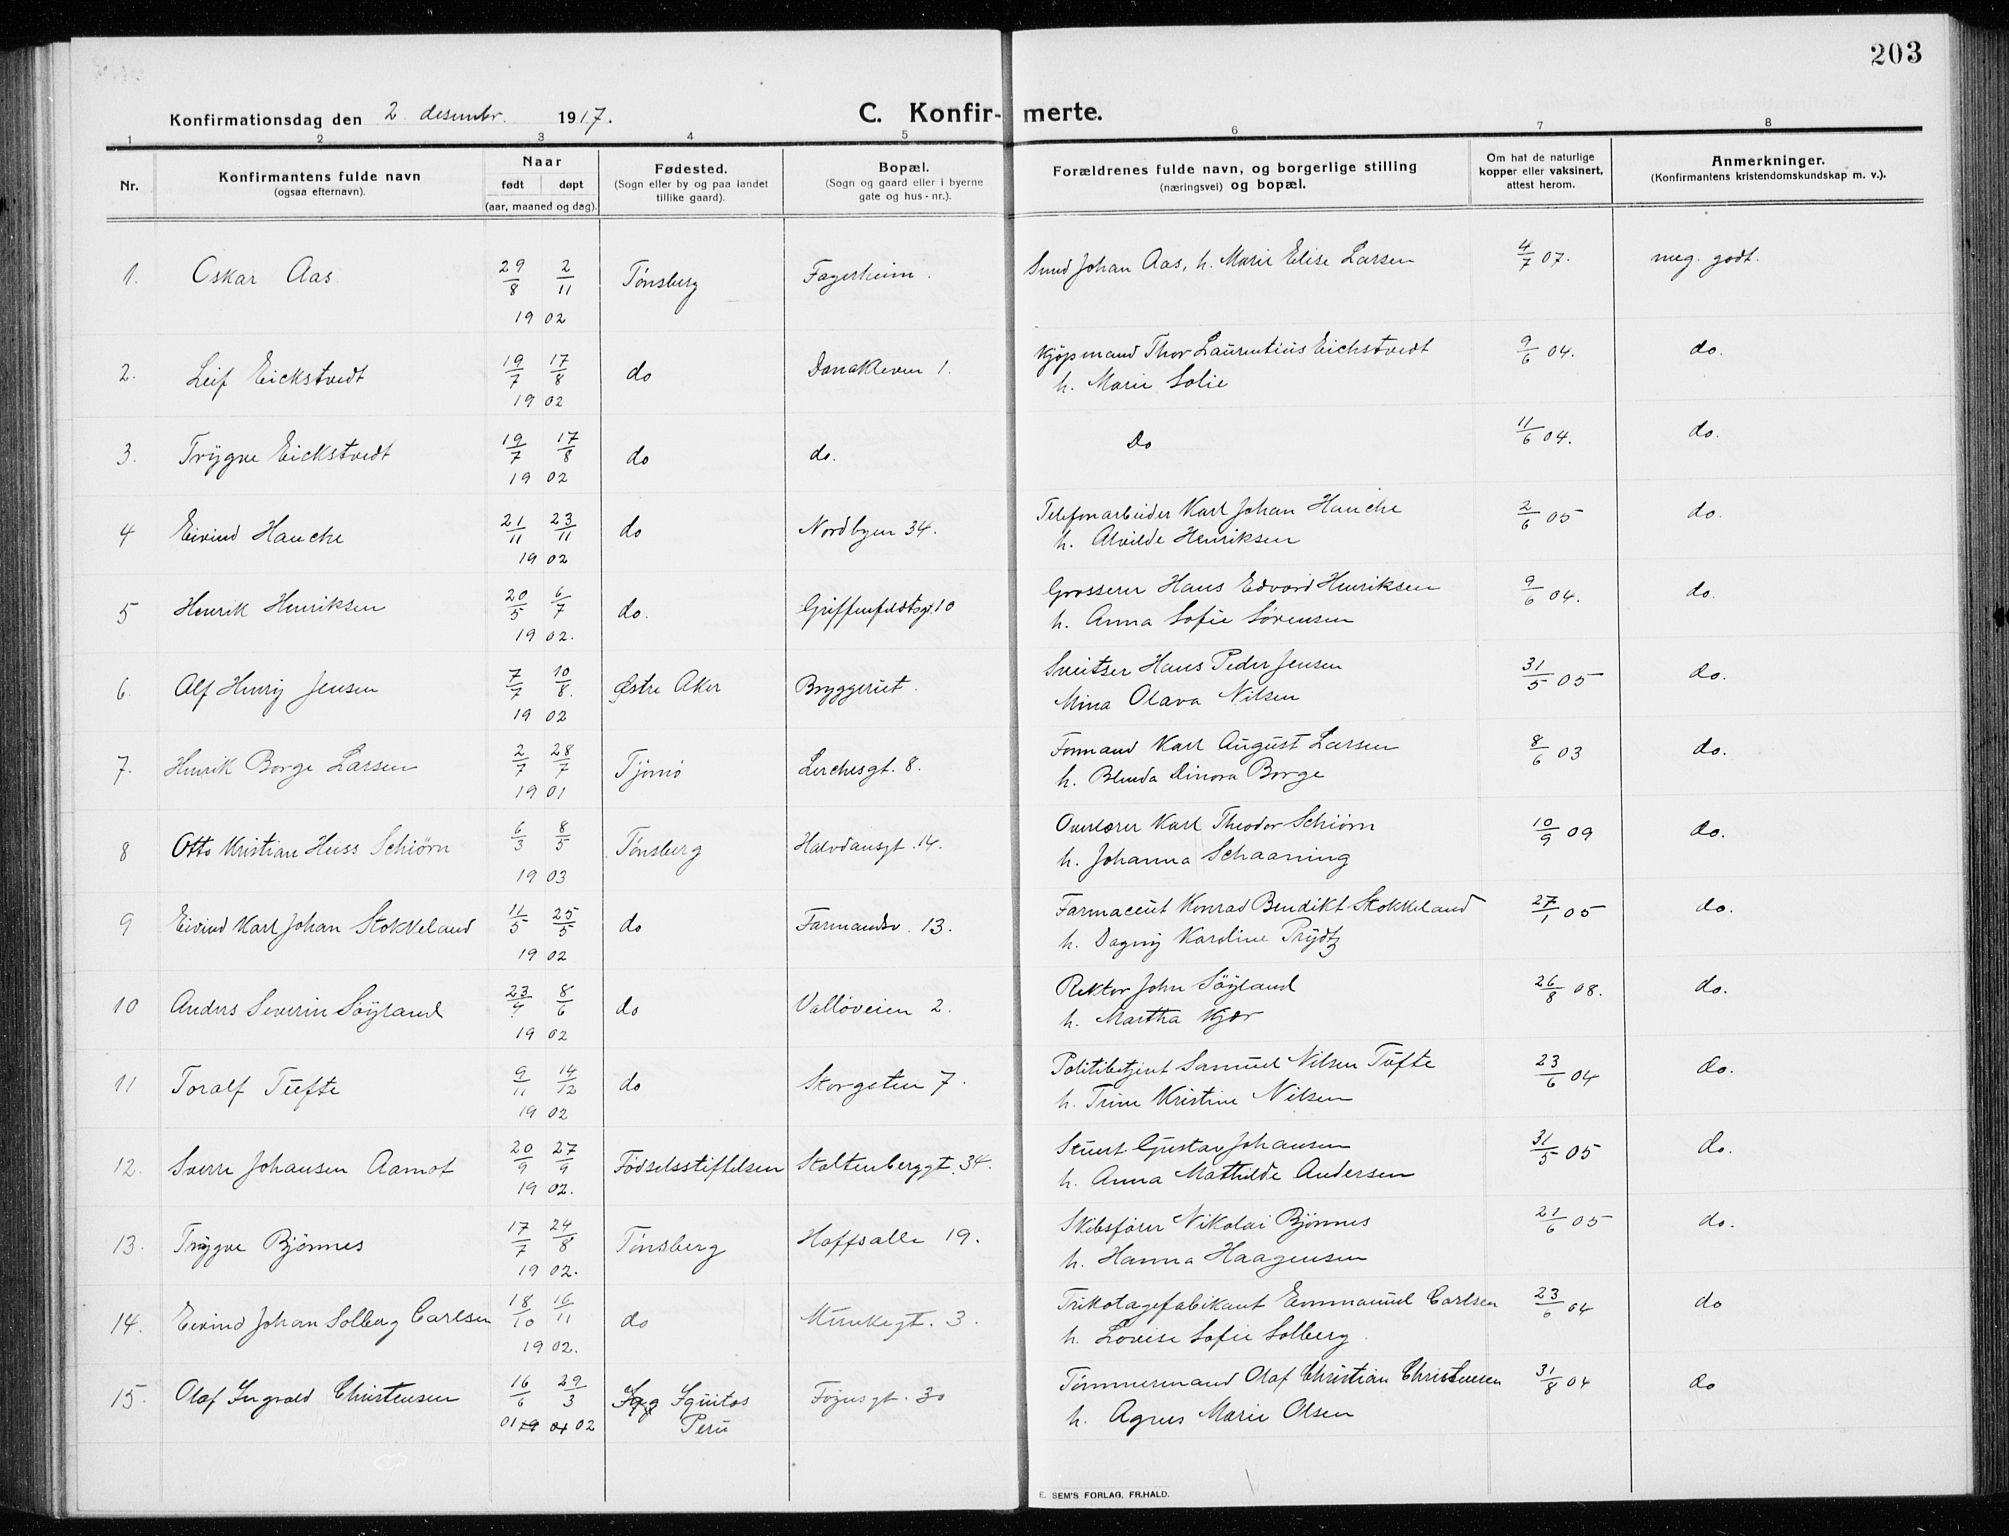 203
Konfirmationsdag den 2. desembr. 1917.
C. Konfirmerte.
1 2 3 4 5 6 7 8
Nr.
Konfirmantens fulde navn
(ogsaa efternavn).
Naar
født døpt
(aar, maaned og dag).
Fødested.
(Sogn eller by og paa landet
tillike gaard).
Bopæl.
(Sogn og gaard eller i byerne
gate og hus-nr.).
Forældrenes fulde navn, og borgerlige stilling
(næringsvei) og bopæl.
Om hat de naturlige
kopper eller vaksinert,
attest herom.
Anmerkninger.
(Konfirmantens kristendomskundskap m. v.).
1. Oskar Aas. 29/8 2/11 1902 Tønsberg Fagerheim. Johan Aas, h. Marie Elise Larsen 4/7 07. meg. godt.
2. Leif Eickstvedt 19/7 17/8 1902 do Danakleven 1. Kjøpmand Thor Laurentius Eichstvedt
h. Marie Solie 9/6 04. do.
3. Trygve Eickstvedt 19/7 17/8 1902 do do. Do 11/6 04. do.
4 Eivind Hauche 21/11 23/11 1902 do Nordbyen 34. Telefonarbeider Karl Johan Hauche
h. Alvilde Henriksen 2/6 05 do.
5 Henrik Henriksen 20/5 6/7 1902. do. Griffenfeldtsgt. 10 Grosserer Hans Edvard Henriksen
h. Anna Sofie Sørensen 9/6 04. do.
6. Alf Henry Jensen 7/7 10/8. 1902 Østre Aker Bryggeriet. Sveitser Hans Peder Jensen
Mina Olava Nilsen 31/5 05 do.
7. Henrik Borge Larsen 2/7 28/7 1901 Tjømø Lerchesgt. 8. Formand Karl August Larsen
h. Blenda Dinora Borge 8/6 03 do.
8 Otto Kristian Huss Schiørn 6/3 8/5 1903 Tønsberg Halvdansgt. 14. Overlærer Karl Theodor Schiørn
h. Johanna Schaanning 10/9 09 do.
9 Eivind Karl Johan Stokkeland 11/5 25/5 1902 do Farmandsv. 13. Farmaceut Konrad Bendikt Stokkeland
h. Dagny Karoline Prydtz 27/1 05 do.
10 Anders Severin Søyland 23/4 8/6 1902 do Valløveien 2. Rektor John Søyland
h. Martha Kjær 26/8 08. do.
11 Toralf Tufte 9/11 14/12 1902 do Storgaten 7. Politibetjent Samuel Nilsen Tufte
h. Trine Kristine Nilsen 23/6 04 do.
12. Sverre Johansen Aamot 20/9 27/9 1902. Fødselsstiftelsen Stoltenberggt. 34. Stuert Gustav Johansen
h. Anna Mathilde Andersen 31/5 05 do.
13. Trygve Bjønnes 17/7 24/8 1902. Tønsberg Hoffsalle 19. Skibsfører Nikolai Bjønnes
h. Hanna Haagensen 21/6 05 do.
14. Eivind Johan Solberg Carlsen 18/10 16/11 1902. do Munkegt. 3. Trikotagefabrikant Emmanuel Carlsen
h. Lovise Sofie Solberg. 23/6 04 do
15. Olaf Ingvald Christensen 16/6 29/3 01 02 Iquitos
Peru Føynsgt. 30 Tømmermand Olaf Christian Christensen
h. Agnes Marie Olsen 31/8 04 do
E. SEM'S FORLAG, FR.HALD.